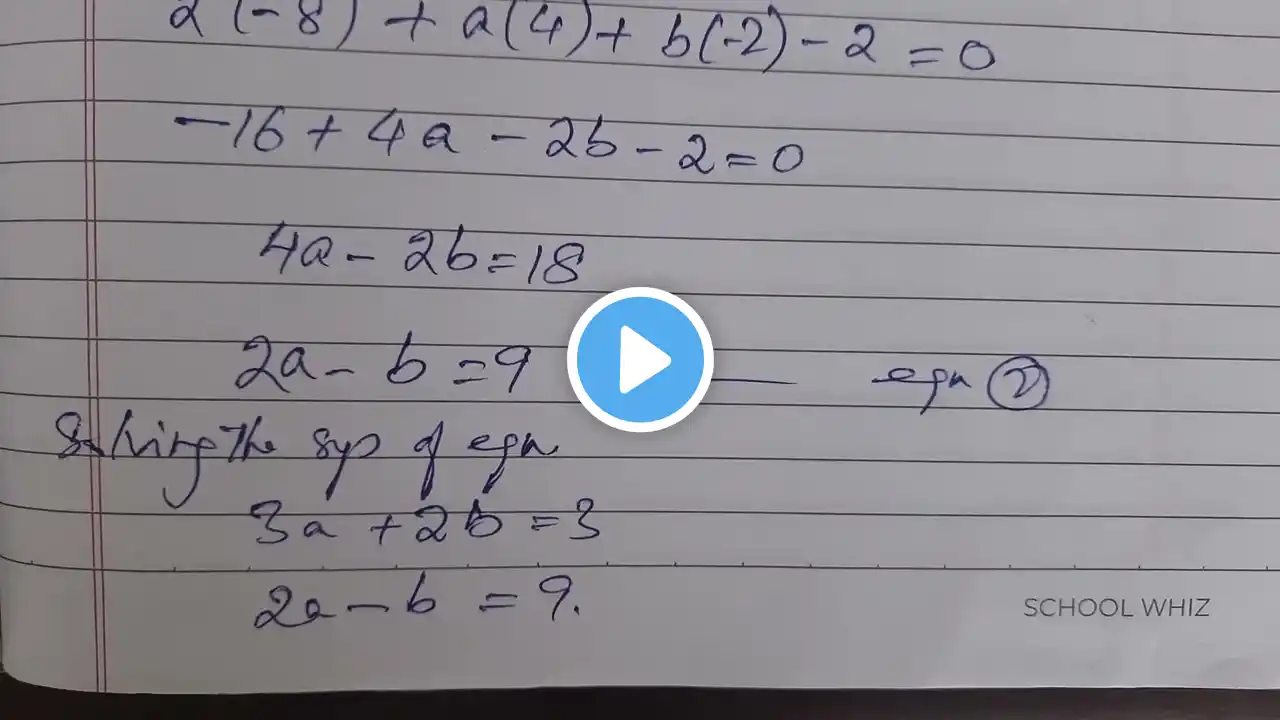 2(-8) + a(4) + b(-2) - 2 = 0
-16 + 4a - 2b - 2 = 0
4a - 2b = 18
2a - b = 9 — eqn ②
Solving The sys of eqn
3a + 2b = 3
2a - b = 9.
SCHOOL WHIZ